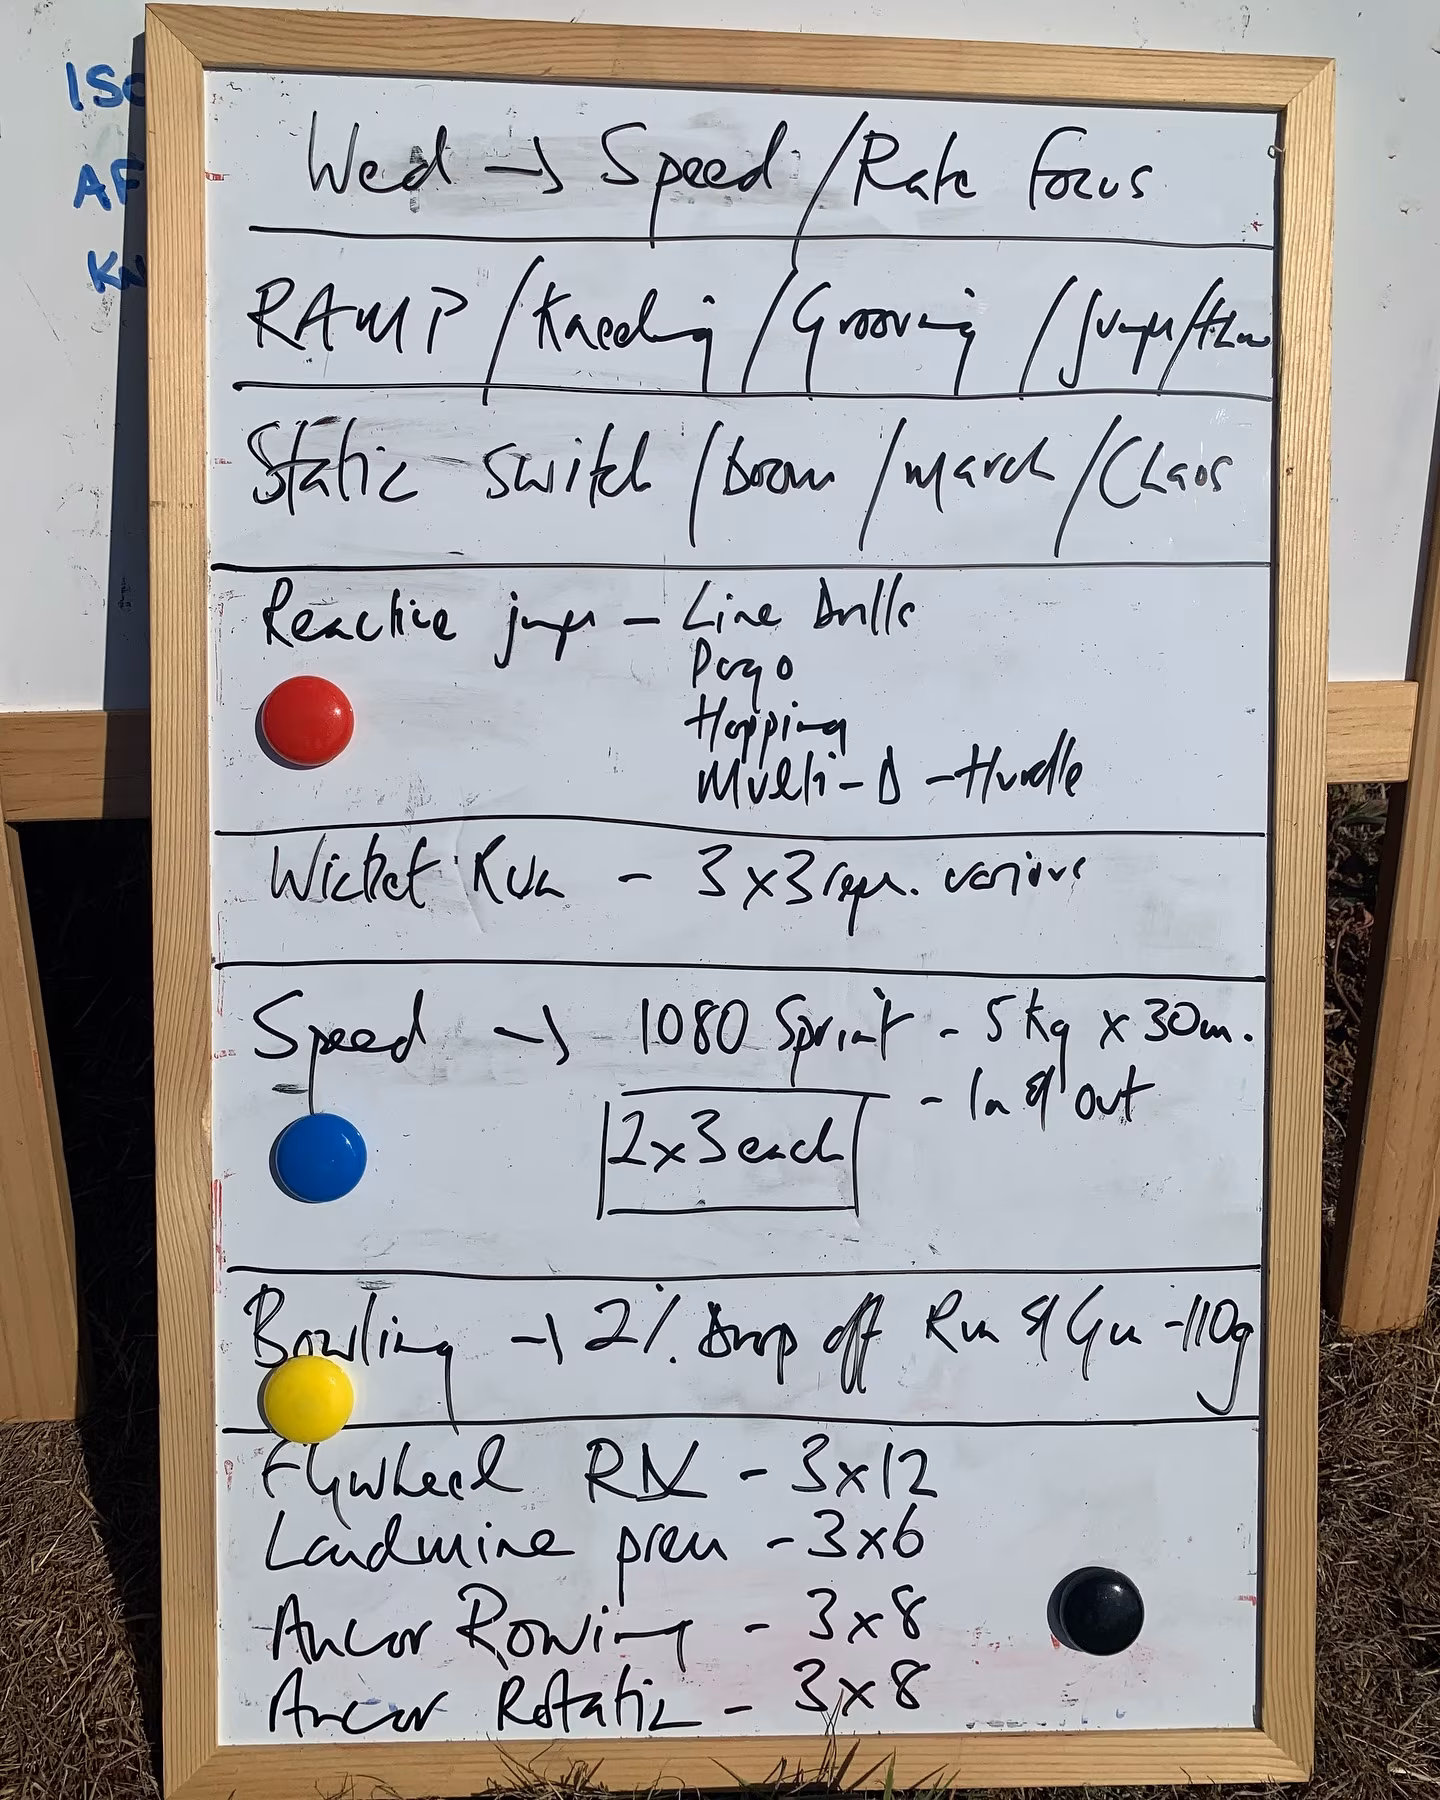 ISO
AF
KN
Wed → Speed / Rate focus
RAMP / Kneeling / Grooving / jumps / throw
Static switch / Boom / march / Chaos
Reactive jumps – Line Drills
Pogo
Hopping
Multi-D – Hurdle
Wicket Run – 3x3 reps. various
Speed → 1080 Sprint - 5kg x 30m.
- In & out
2x3 each
Bowling → 2% Drop off Run & Gun - 110g
Flywheel - 3x12
Landmine press - 3x6
Ancor Rowing - 3x8
Ancor Rotatic - 3x8